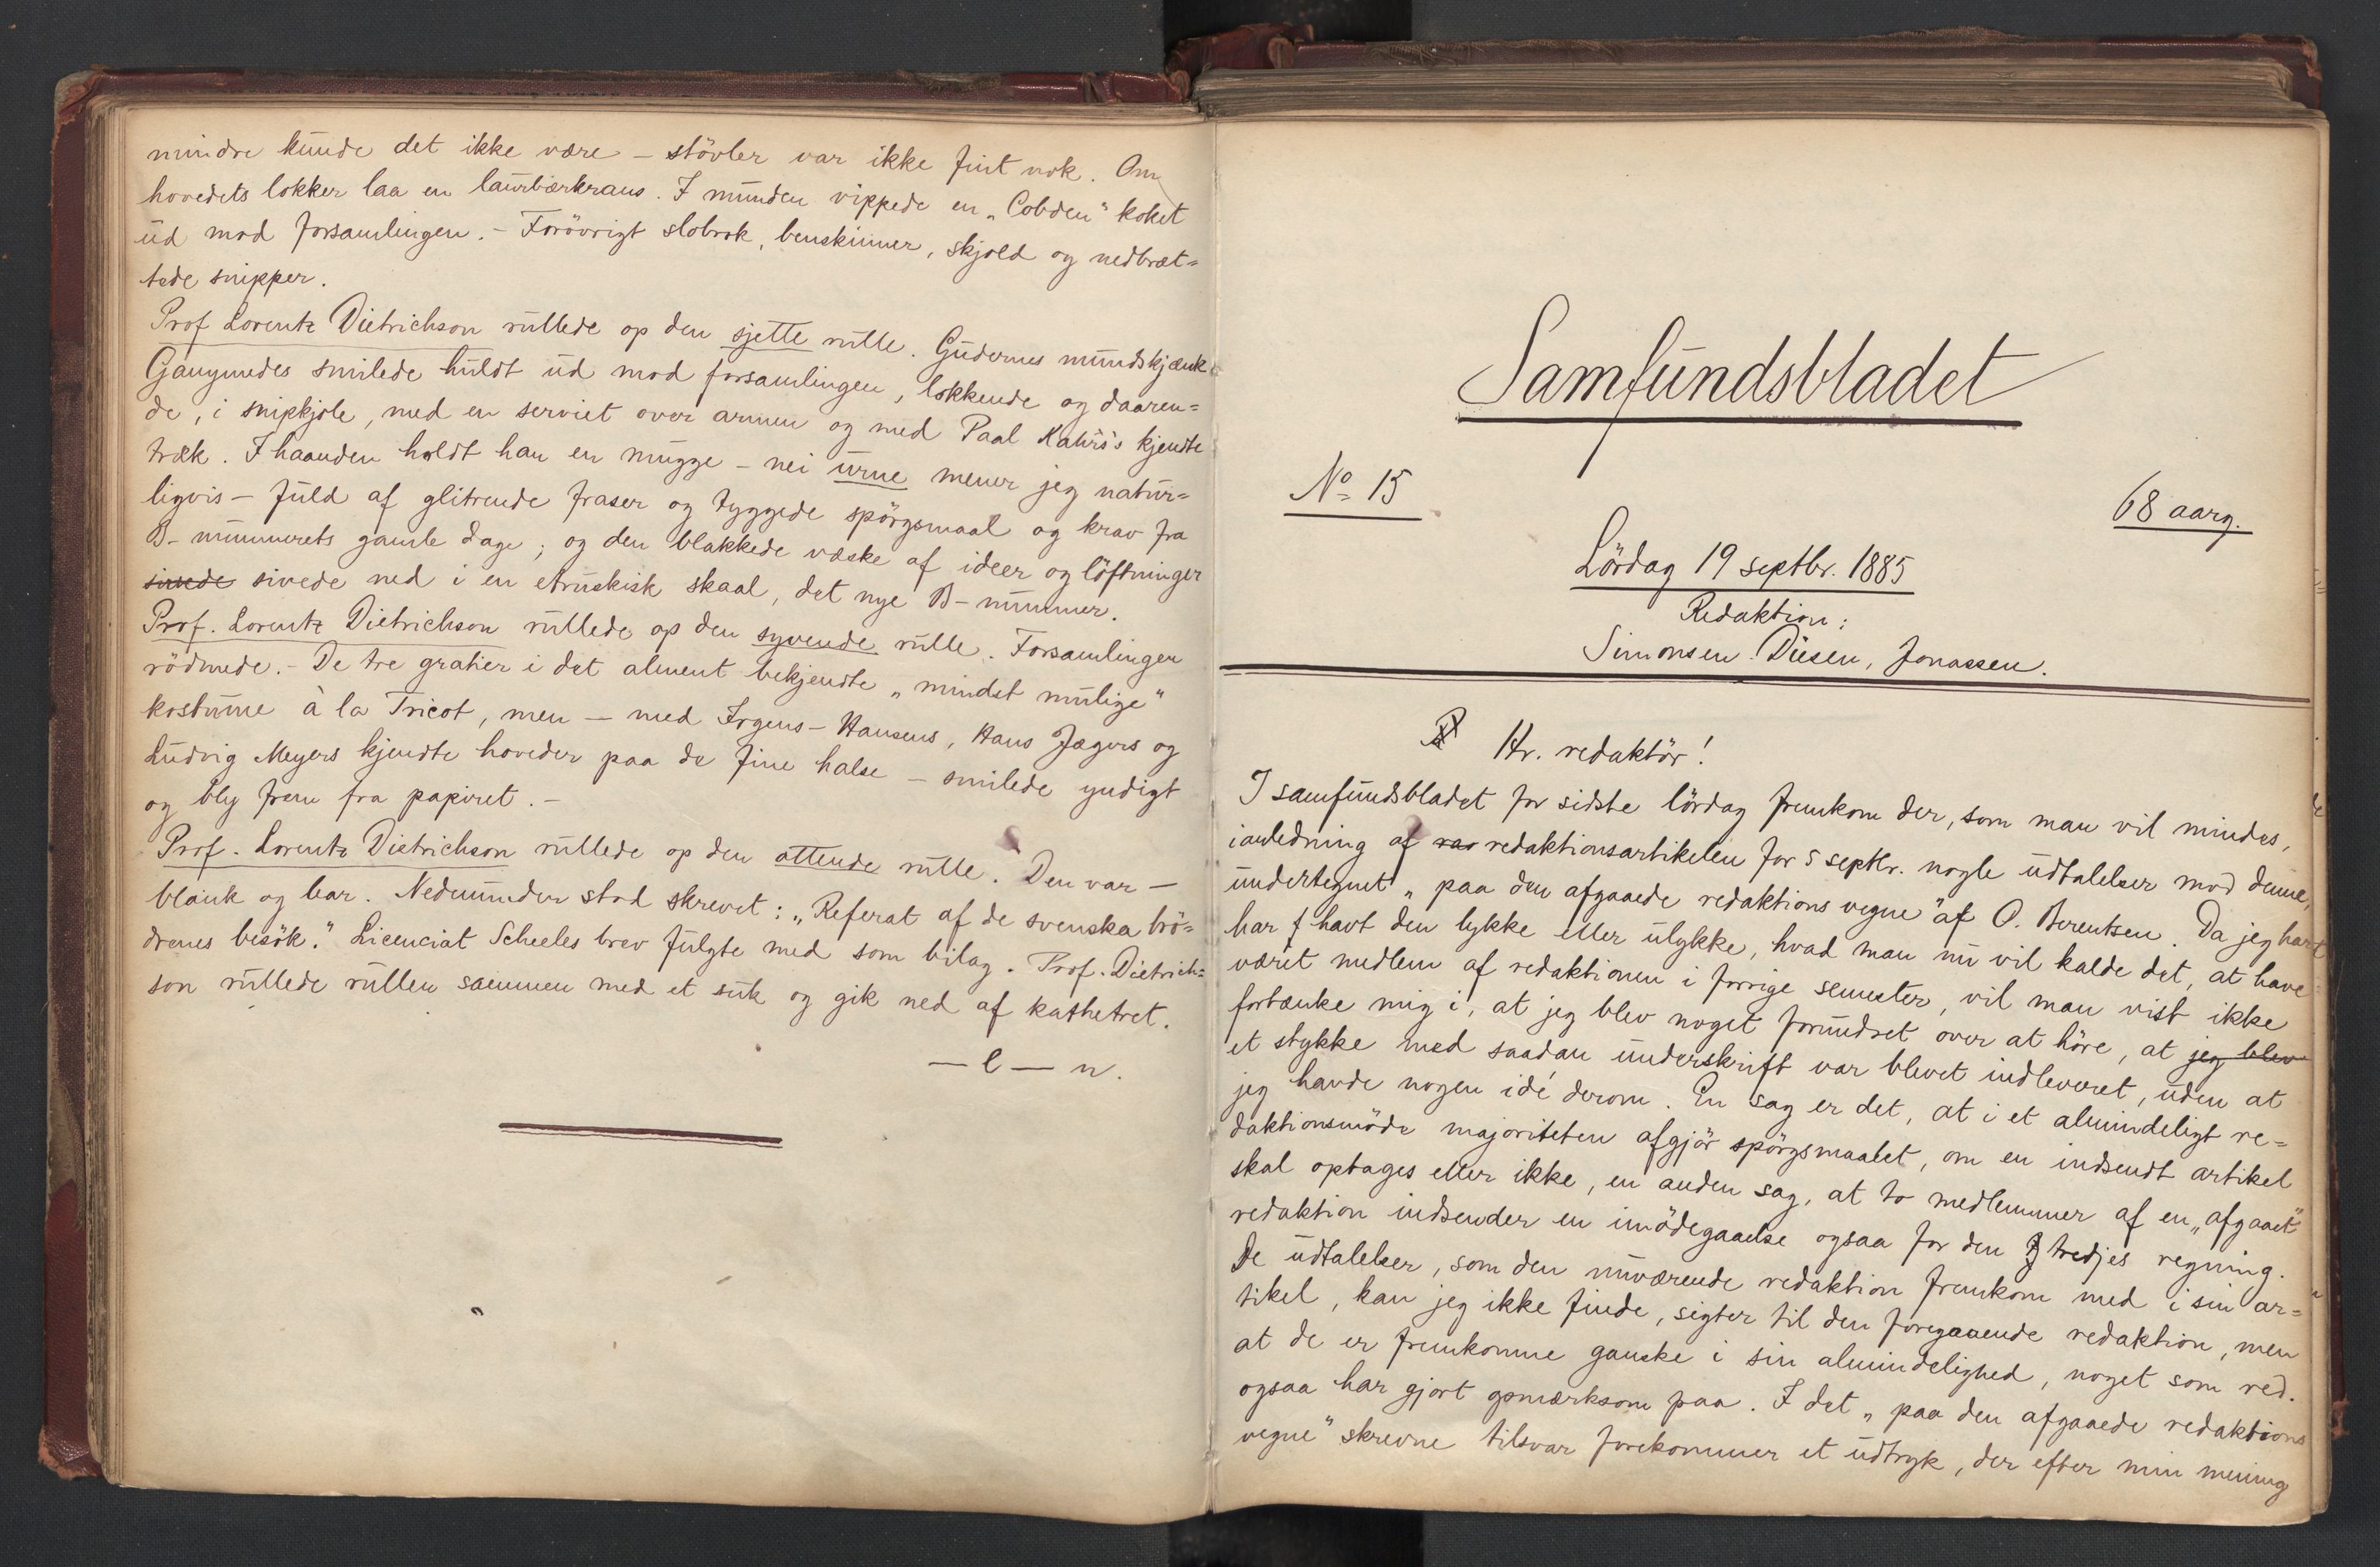 mindre kunde det ikke være – stövler var ikke fint nok. Om
hovedets lokker laa en laurbærkrans. I munden vippede en „Cobden“ koket
ud mod forsamlingen. – Forövrigt slobrok, benskinner, skjold og nedbræt=
tede snipper.
Prof Lorentz Dietrichson rullede op den sjette rulle. Gudernes mundskjænk
Ganymedes smilede huldt ud mod forsamlingen, lokkende og daaren=
de, i snipkjole, med en serviet over armen og med Paal Kahrs's kjendte
træk. I haanden holdt han en mugge – nei urne mener jeg natur=
ligvis – fuld af glitrende fraser og tyggede spörgsmaal og krav fra
B-nummerets gamle dage; og den blakkede væske af ideer og löftninger
sivede ned i en etruskisk skaal, det nye B-nummer.
Prof. Lorentz Dietrichson rullede op den syvende rulle. Forsamlingen
rödmede. – De tre gratier i det alment bekjendte „mindst mulige“
kostume à la Tricot, men – med Irgens-Hansens, Hans Jægers og
Ludvig Meyers kjendte hoveder paa de fine halse – smilede yndigt
og bly frem fra papiret. –
Prof. Lorentz Dietrichson rullede op den ottende rulle. Den var –
blank og bar. Nedenunder stod skrevet: „Referat af de svenska brö=
drenes besök.“ Licenciat Scheeles brev fulgte med som bilag. Prof. Dietrich=
son rullede rullen sammen med et suk og gik ned af kathetret.
— l — n.
Samfundsbladet
No 15
68 aarg.
Lördag 19 septbr. 1885
Redaktion:
Simonsen. Duesen, Jonassen.
Hr. redaktör!
I samfundsbladet for sidste lördag fremkom der, som man vil mindes,
ianledning af redaktionsartikelen for 5 septbr. nogle udtalelser mod denne,
undertegnet „paa den afgaaede redaktions vegne“ af O. Berentsen. Da jeg har
har havt den lykke eller ulykke, hvad man nu vil kalde det, at have
været medlem af redaktionen i forrige semester, vil man vist ikke
fortænke mig i, at jeg blev noget forundret over at höre, at jeg blev
et stykke med saadan underskrift var blevet indleveret, uden at
jeg havde nogen idé derom. En sag er det, at i et almindeligt re=
daktionsmöde majoriteten afgjör spörgsmaalet, om en indsendt artikel
skal optages eller ikke, en anden sag, at to medlemmer af en „afgaaet“
redaktion indsender en imödegaaelse ogsaa for den tredjes regning.
De udtalelser, som den nuværende redaktion fremkom med i sin ar=
tikel, kan jeg ikke finde, sigter til den foregaaende redaktion, men
at de er fremkomne ganske i sin almindelighed, noget som red.
ogsaa har gjort opmærksom paa. I det „paa den afgaaede redaktions
vegne“ skrevne tilsvar forekommer et udtryk, der efter min mening